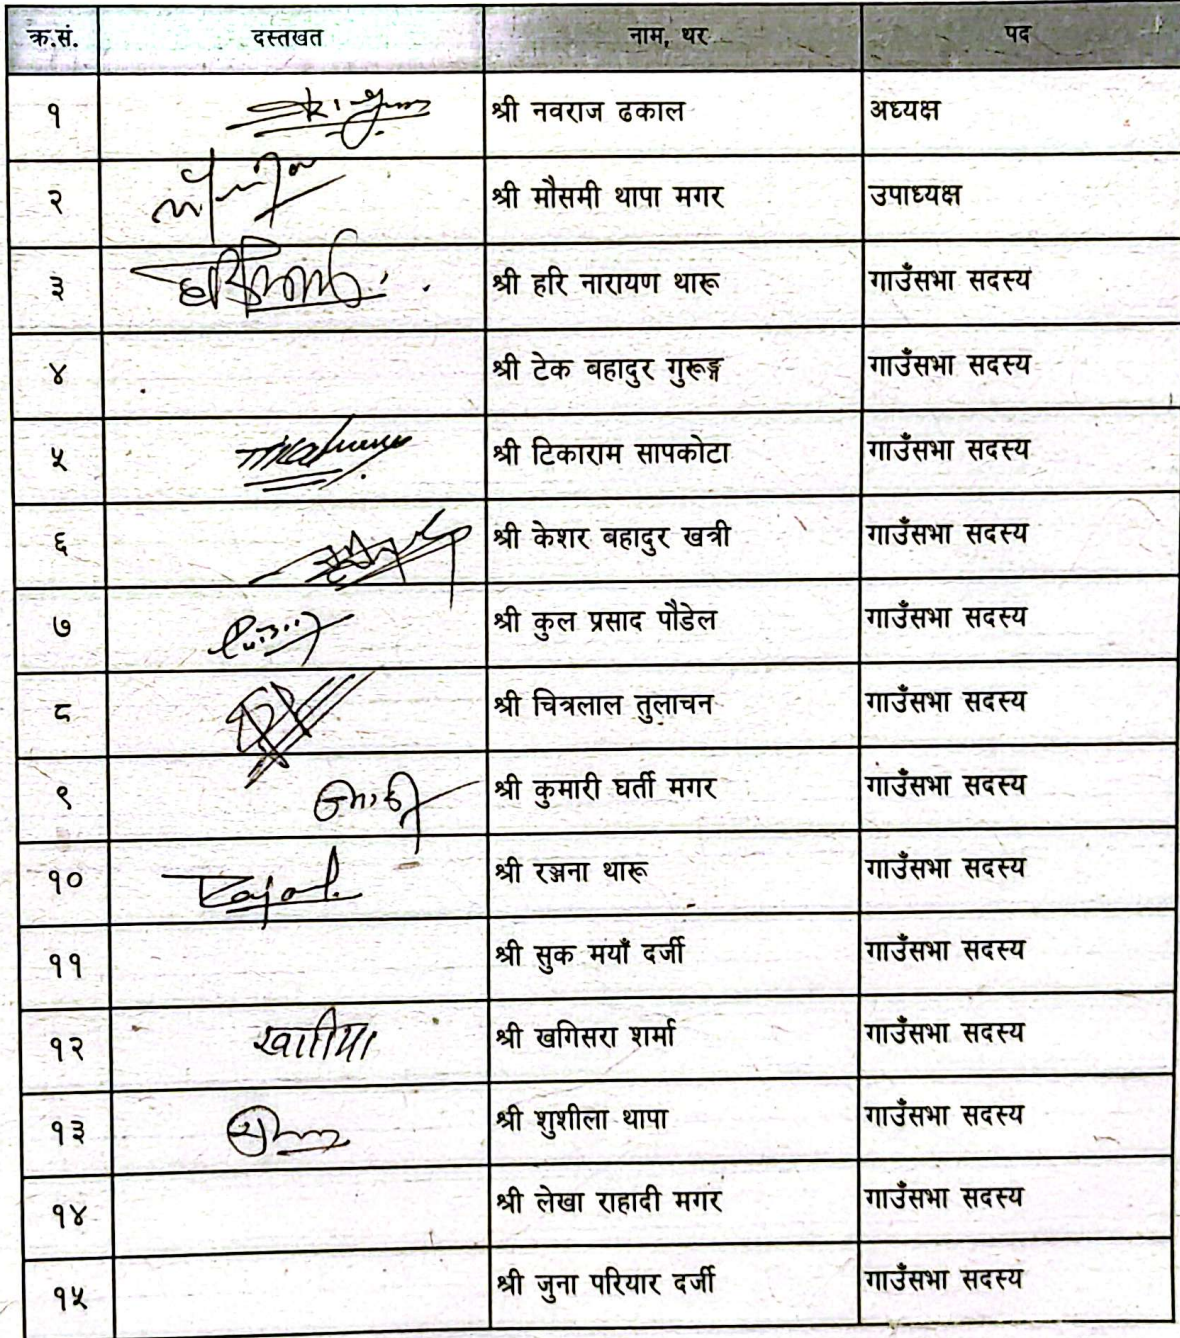 क्र.सं. दस्तखत नाम, थर पद
१ श्री नवराज ढकाल अध्यक्ष
२ श्री मौसमी थापा मगर उपाध्यक्ष
३ श्री हरि नारायण थारू गाउँसभा सदस्य
४ श्री टेक बहादुर गुरूङ्ग गाउँसभा सदस्य
५ श्री टिकाराम सापकोटा गाउँसभा सदस्य
६ श्री केशर बहादुर खत्री गाउँसभा सदस्य
७ श्री कुल प्रसाद पौडेल गाउँसभा सदस्य
८ श्री चित्रलाल तुलाचन गाउँसभा सदस्य
९ श्री कुमारी घर्ती मगर गाउँसभा सदस्य
१० श्री रञ्जना थारू गाउँसभा सदस्य
११ श्री सुक मयाँ दर्जी गाउँसभा सदस्य
१२ श्री खगिसरा शर्मा गाउँसभा सदस्य
१३ श्री शुशीला थापा गाउँसभा सदस्य
१४ श्री लेखा राहादी मगर गाउँसभा सदस्य
१५ श्री जुना परियार दर्जी गाउँसभा सदस्य